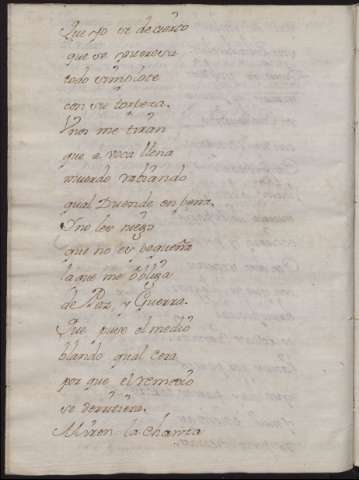 Que yo se de cierto
que se
todo
con su torpeza.
Unos me tiran
que á voca llena
muerdo rabiando
qual Duende en pena.
I no les niego
que no es pequeña
la que me obliga
de Paz, y Guerra.
Que puse el medio
blando qual cera
por que el remedio
se derritiera.
Miren la chanza